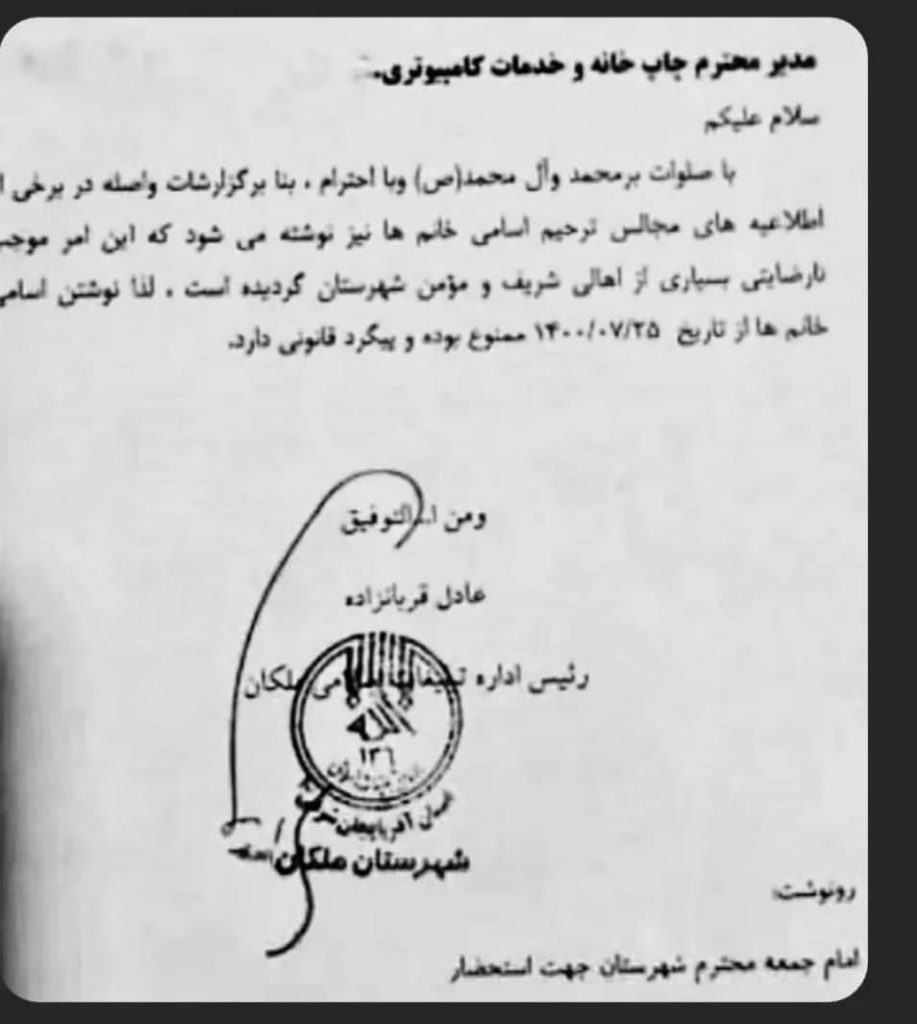 مدیر محترم چاپ خانه و خدمات کامپیوتری.
سلام علیکم
با صلوات برمحمد وآل محمد(ص) وبا احترام ، بنا برگزارشات واصله در برخی ا
اطلاعیه های مجالس ترحیم اسامی خانم ها نیز نوشته می شود که این امر موجب
نارضایتی بسیاری از اهالی شریف و مؤمن شهرستان گردیده است ، لذا نوشتن اسامی
خانم ها از تاریخ ۱۴۰۰/۰۷/۲۵ ممنوع بوده و پیگرد قانونی دارد.
ومن ا... التوفیق
عادل قربانزاده
رئیس اداره تبلیغات اسلامی ملکان
استان آذربایجان شرقی
شهرستان ملکان
رونوشت:
امام جمعه محترم شهرستان جهت استحضار